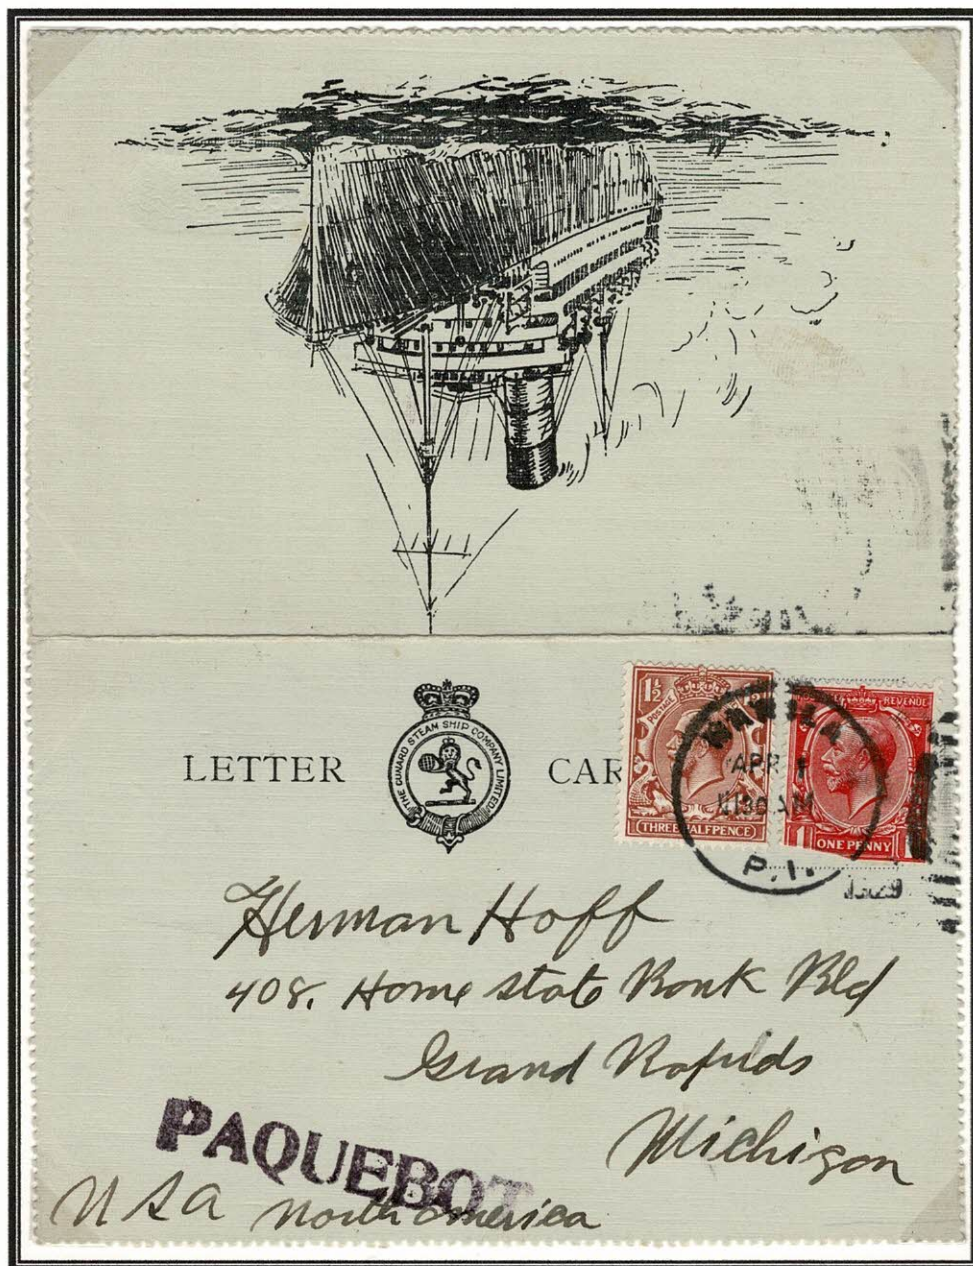 LETTER CAR
THE CUNARD STEAM SHIP COMPANY LIMITED
1½ POSTAGE
THREE HALFPENCE
REVENUE
1 ONE PENNY 1
MANILA
APR 1
AM
P.I.
1929
Herman Hoff
408. Home state Bank Bld
Grand Rapids
Michigan
PAQUEBOT
USA North america